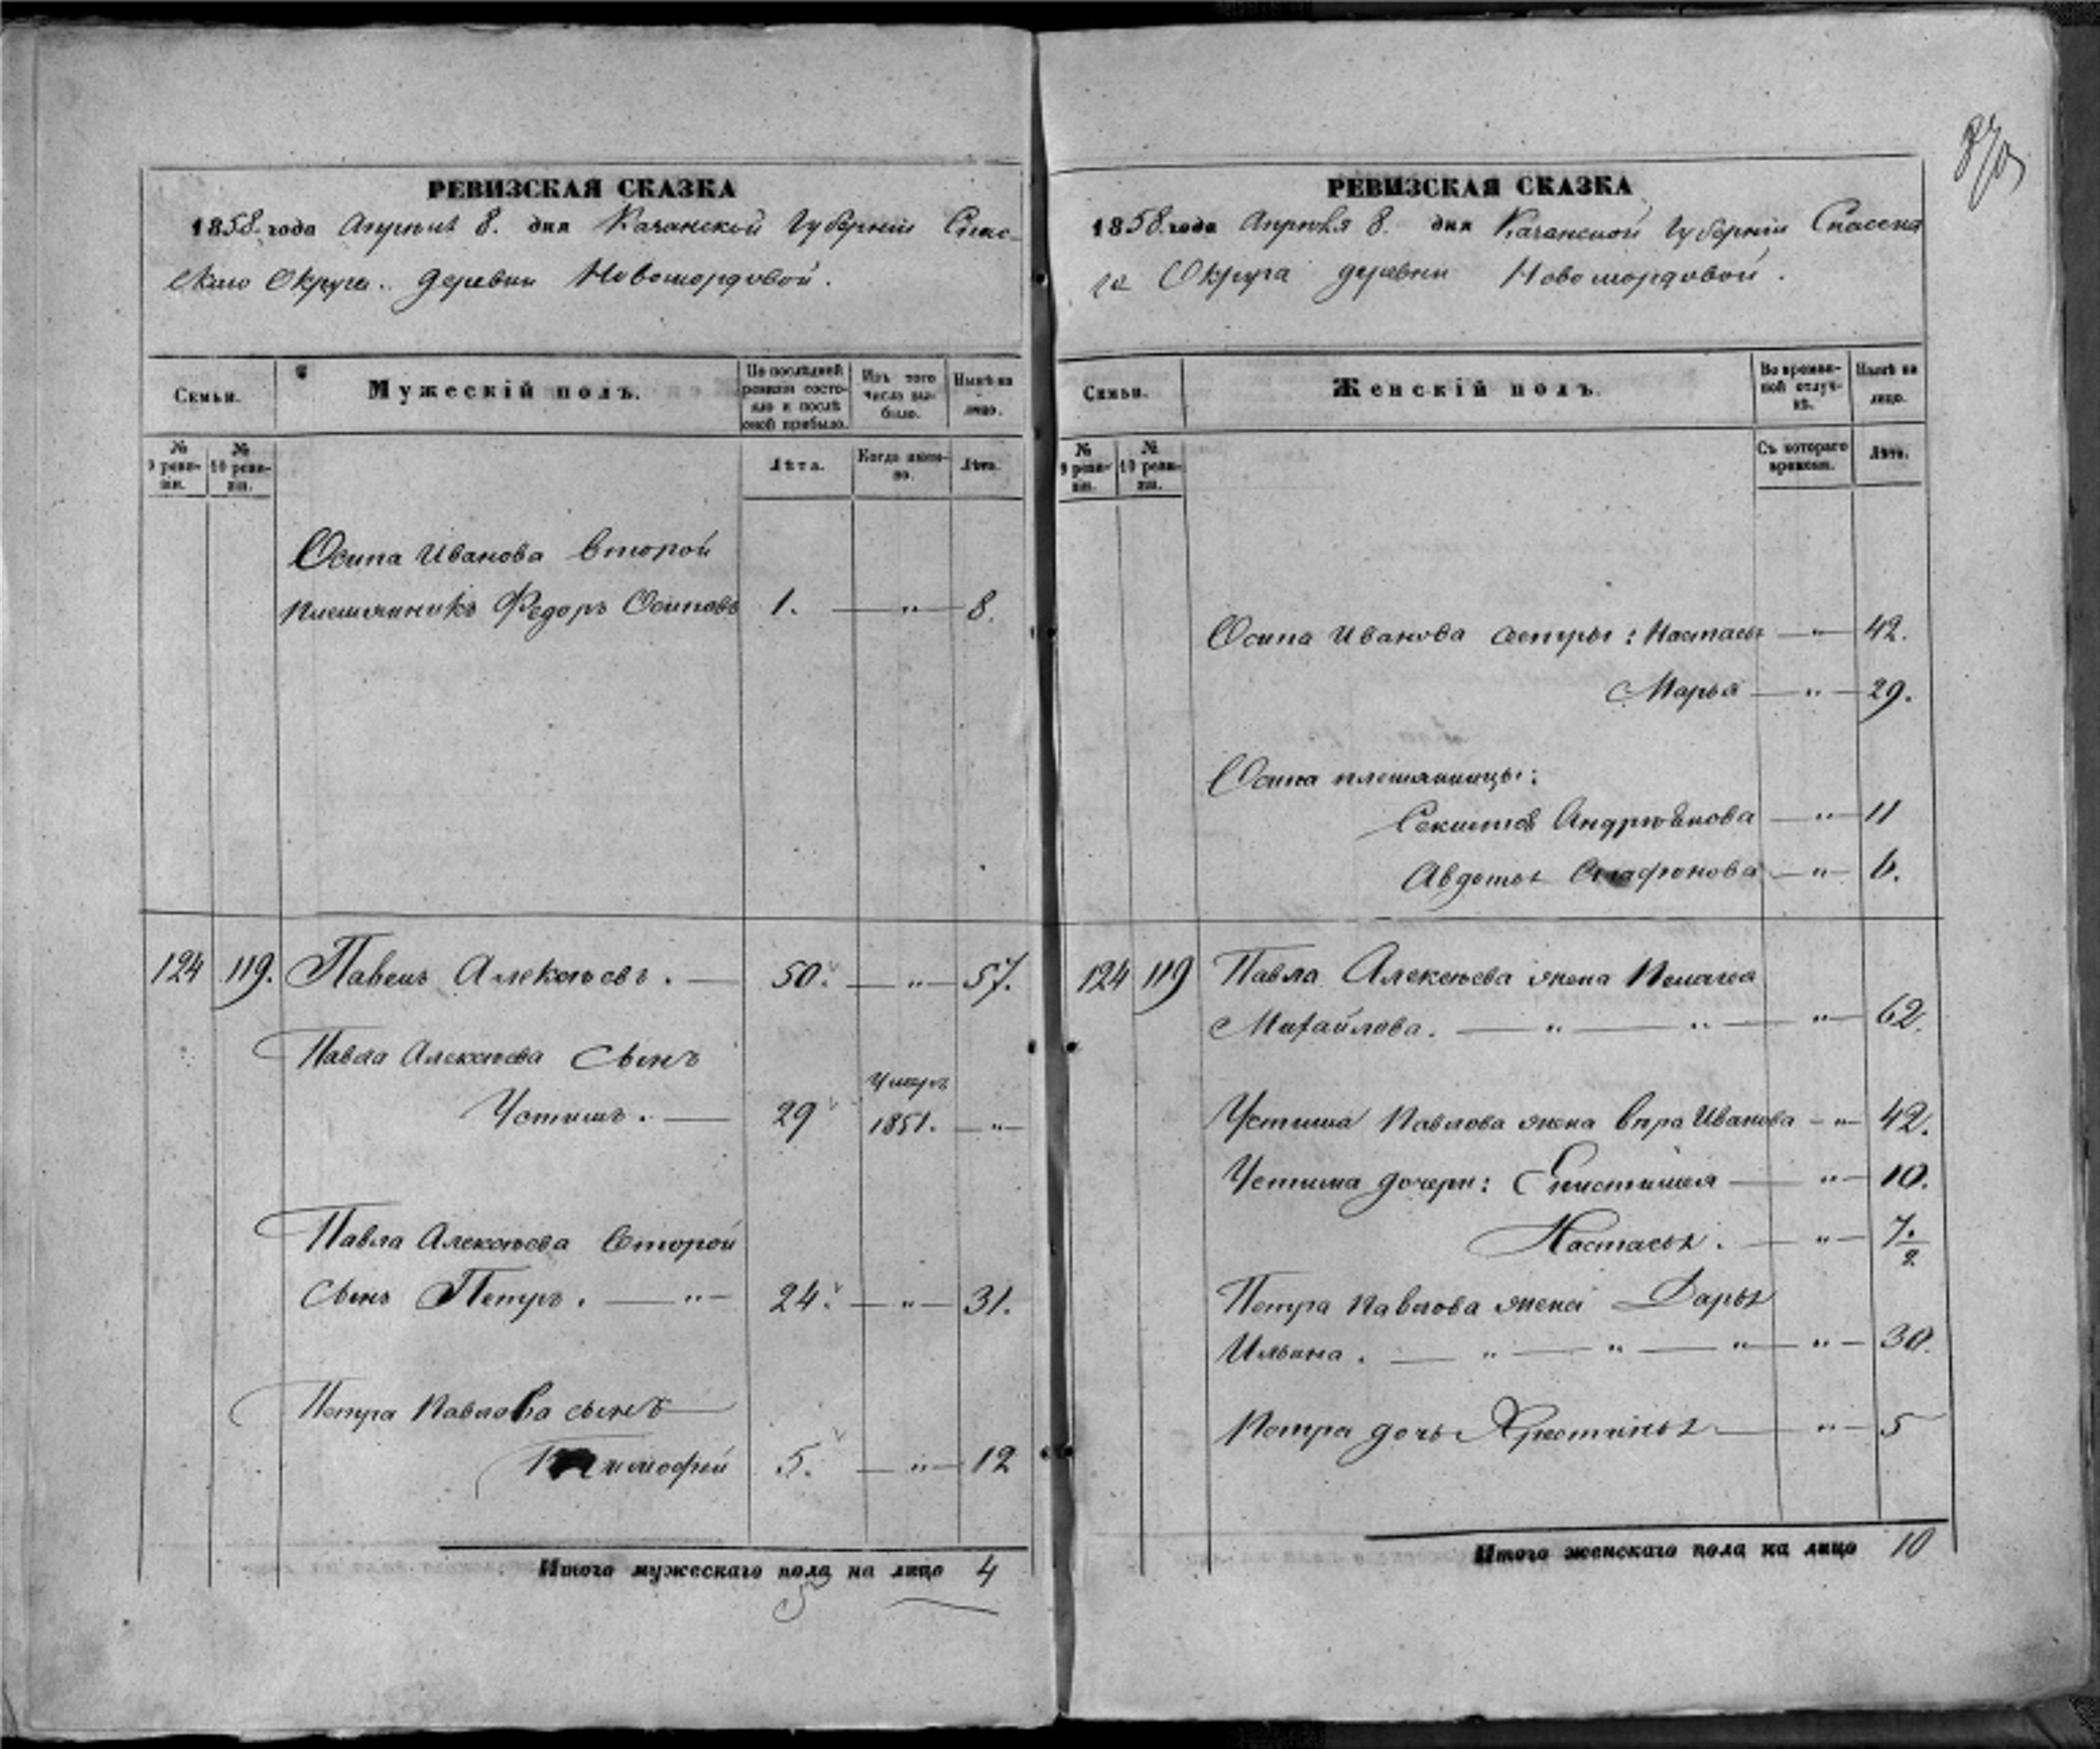 РЕВИЗСКАЯ СКАЗКА
1858 года Апрѣля 8. дня Казанской Губерніи Спас-
скаго Округа. деревни Новомордовой.
Семьи.
Мужескій полъ.
По послѣдней ревизіи состояло и послѣ оной прибыло.
Изъ того числа выбыло.
Нынѣ на лицо.
№ 9 ревизіи.
№ 10 ревизіи.
Лѣта.
Когда именно.
Лѣта.
Осипа Иванова второй
племянникъ Федоръ Осиповъ 1. — „ — 8.
124 119. Павелъ Алексѣевъ. — 50. — „ — 57.
Павла Алексѣева сынъ
Устимъ. — 29 Умеръ 1851. — „ —
Павла Алексѣева второй
сынъ Петръ. — „ — 24. — „ — 31.
Петра Павлова сынъ
Тимофей 5. — „ — 12
Итого мужескаго пола на лицо 4
5
РЕВИЗСКАЯ СКАЗКА
1858. года Апрѣля 8. дня Казанской Губерніи Спаска
го Округа деревни Новомордовой.
Семьи.
Женскій полъ.
Во временной отлучкѣ.
Нынѣ на лицо.
№ 9 ревизіи.
№ 10 ревизіи.
Съ котораго времени.
Лѣта.
Осипа Иванова сестры: Настасья — „ — 42.
Марья — „ — 29.
Осипа племянницы:
Андреянова — „ — 11
Авдотья — „ — 6.
124 119 Павла Алексѣева жена Пелагея
Михайлова. — „ — „ — „ — 62.
Устима Павлова жена Вѣра Иванова — „ — 42.
Устима дочери: Епистимея — „ — 10.
Настасья. — „ — 7. / 2
Петра Павлова жена Дарья
Ильина. — „ — „ — „ — „ — 30.
Петра дочь Христинья — „ — 5
Итого женскаго пола на лицо 10